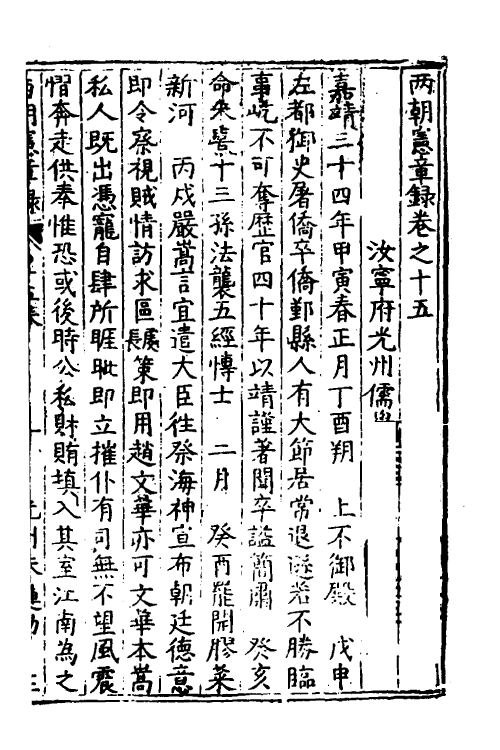 两朝憲章録卷之十五
汝寧府光州儒
嘉靖三十四年甲寅春正月丁酉朔　上不御殿　戊申
左都御史屠僑卒僑鄞縣人有大節居常退遜若不勝臨
事屹不可奪歷官四十年以靖謹著聞卒諡簡肅　癸亥
命朱熹十三孫法襲五經博士　二月　癸酉罷開膠萊
新河　丙戌嚴嵩言宜遣大臣往祭海神宣布朝廷德意
即令察視賊情訪求區處長策即用趙文華亦可文華本嵩
私人既出憑寵自肆所睚眦即立摧仆有司無不望風震
慴奔走供奉惟恐或後時公私財賄填入其室江南為之